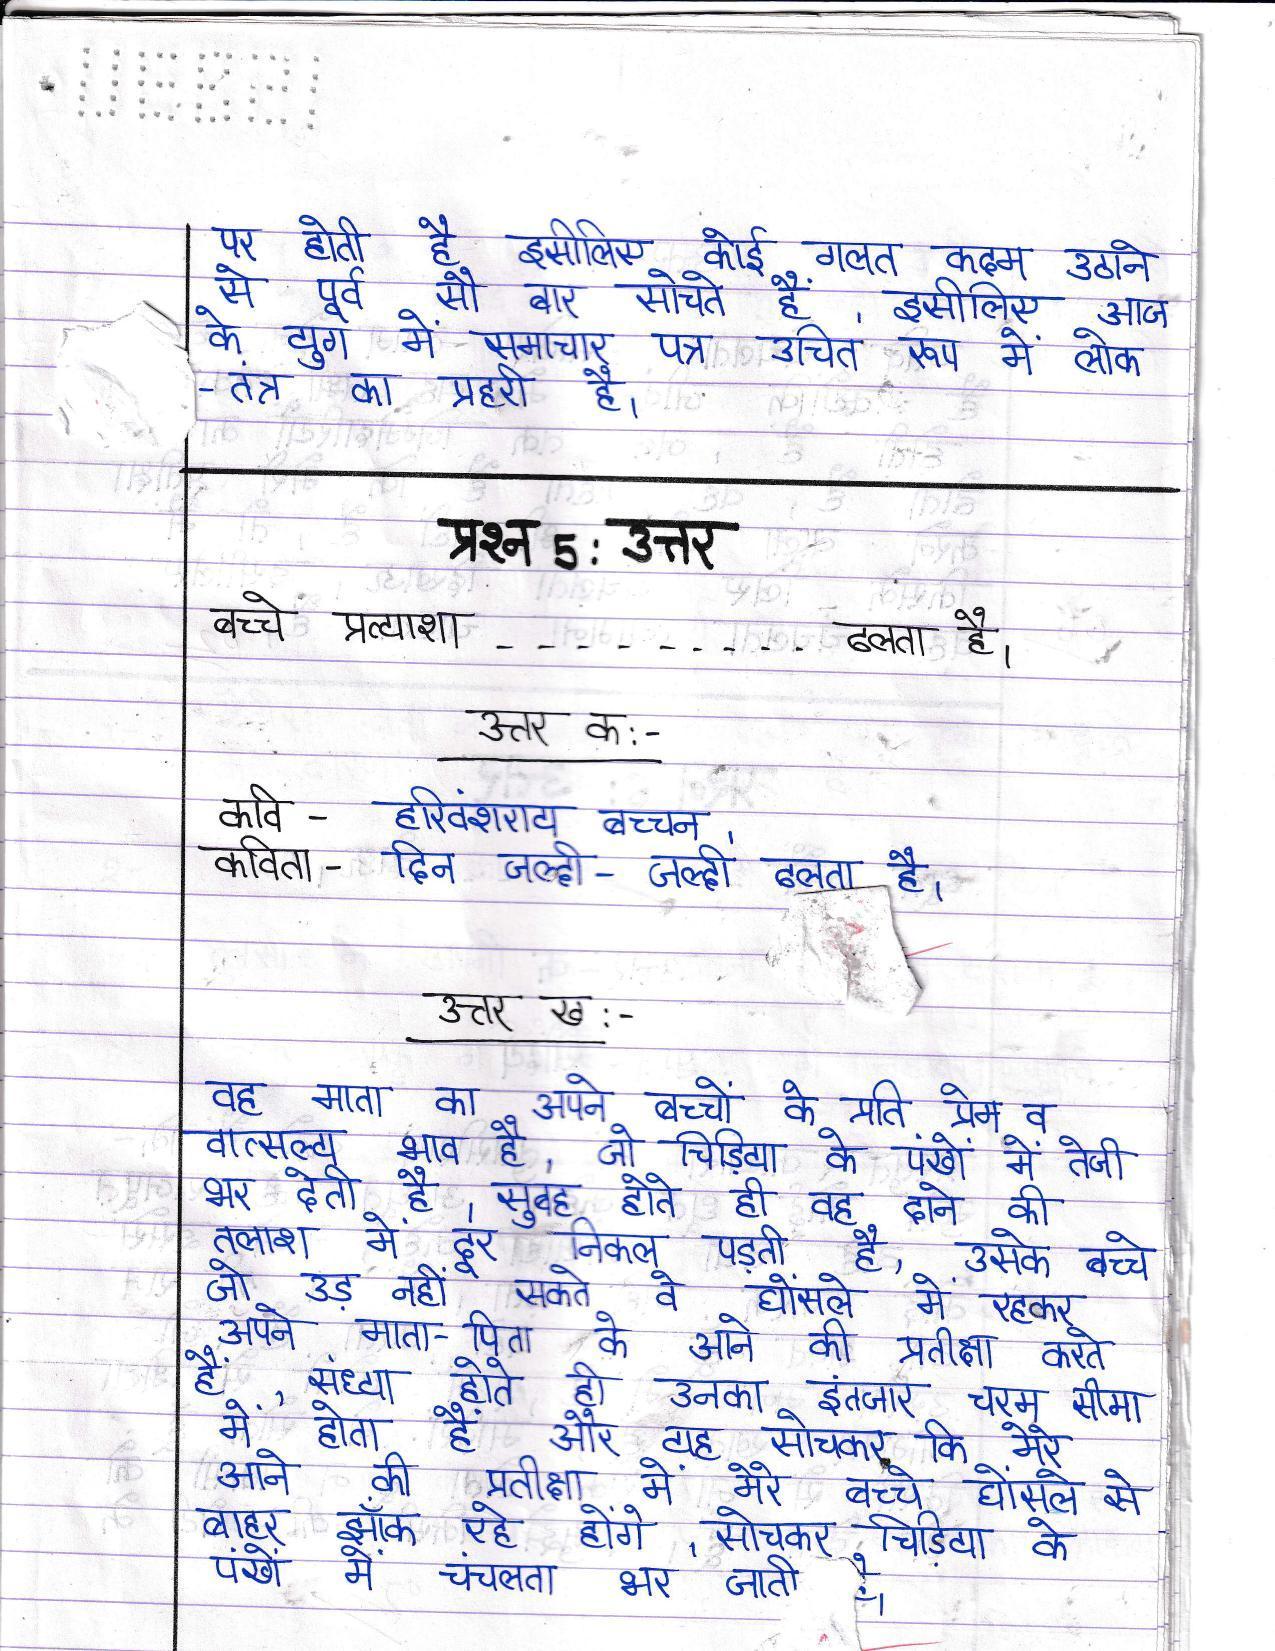 पर होती है इसीलिए कोई गलत कदम उठाने
से पूर्व सौ बार सोचते हैं, इसीलिए आज
के युग में समाचार पत्र उचित रूप में लोक
-तंत्र का प्रहरी है।
प्रश्न 5: उत्तर
बच्चे प्रत्याशा - - - - - - - - - ढलता है।
उत्तर क:-
कवि - हरिवंशराय बच्चन,
कविता - दिन जल्दी - जल्दी ढलता है।
उत्तर ख:-
वह माता का अपने बच्चों के प्रति प्रेम व
वात्सल्य भाव है, जो चिड़िया के पंखों में तेजी
भर देती है, सुबह होते ही वह दाने की
तलाश में दूर निकल पड़ती है, उसके बच्चे
जो उड़ नहीं सकते वे घोंसले में रहकर
अपने माता-पिता के आने की प्रतीक्षा करते
हैं, संध्या होते ही उनका इंतजार चरम सीमा
में होता हैं और यह सोचकर कि मेरे
आने की प्रतीक्षा में मेरे बच्चे घोंसले से
बाहर झाँक रहे होंगे, सोचकर चिड़िया के
पंखों में चंचलता भर जाती है।